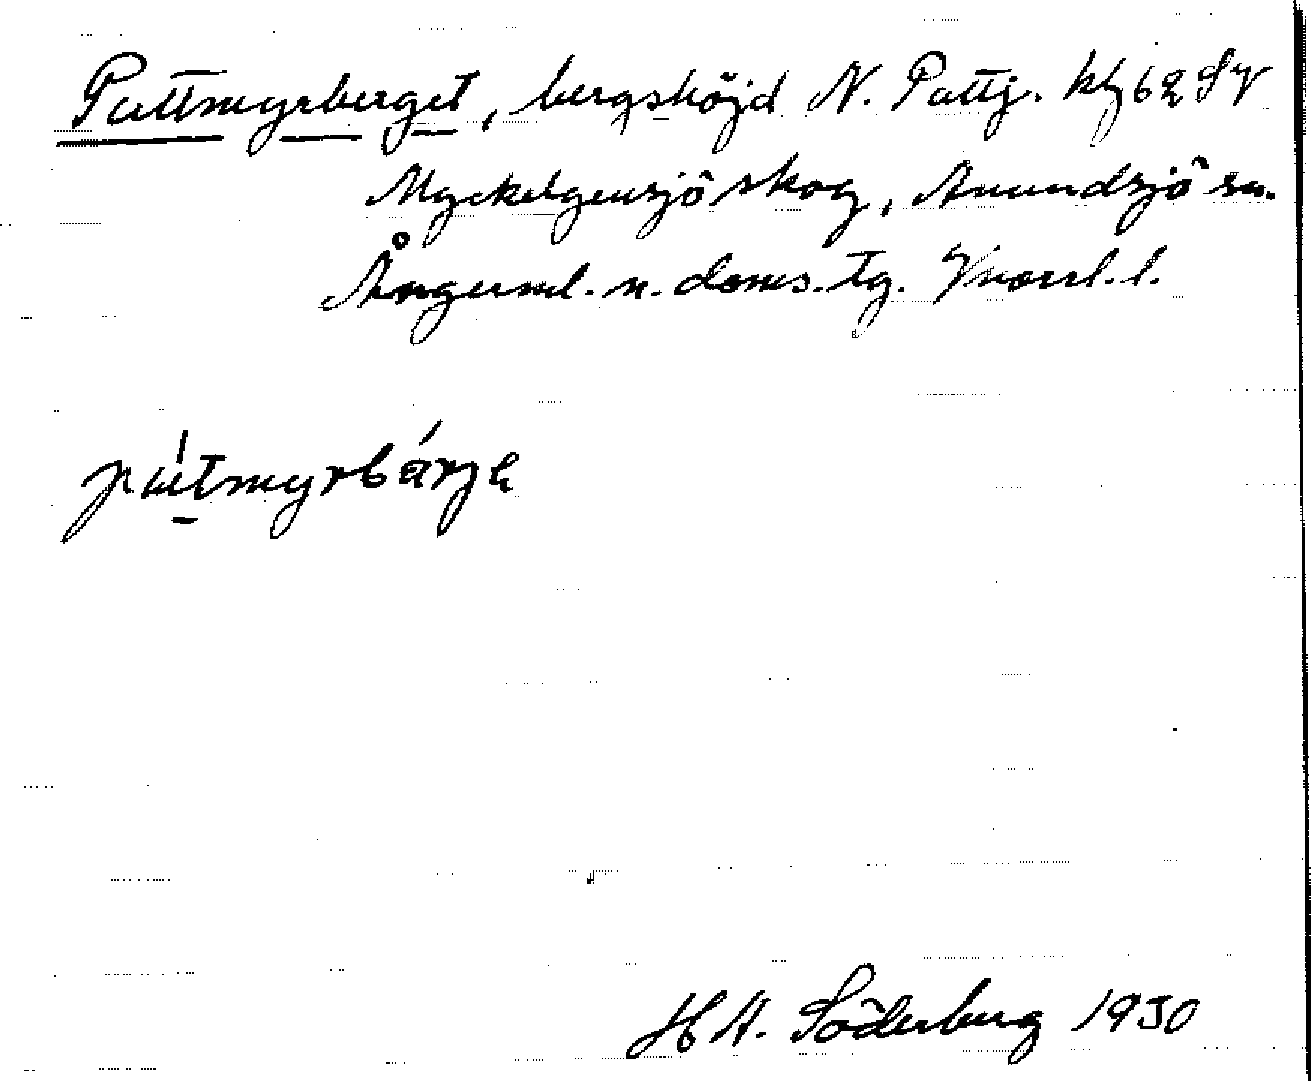 Puttmyrberget, bergshöjd N. Puttj. kbl 62 SV
Myckelgensjö skog, Anundsjö sn.
Ångerml. n. doms. tg. Vnorrl. l.
pútmyrbárjə
H A. Söderberg 1930